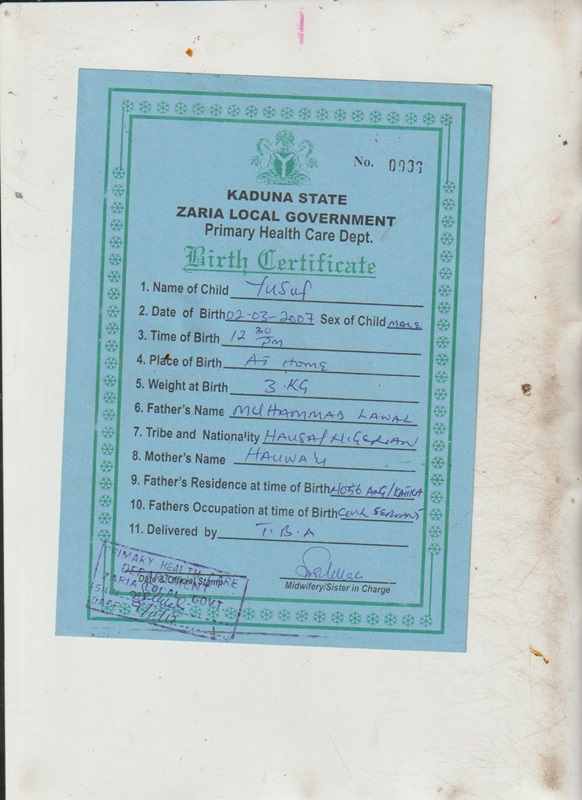 No. 0936
KADUNA STATE
ZARIA LOCAL GOVERNMENT
Primary Health Care Dept.
Birth Certificate
1. Name of Child Yusuf
2. Date of Birth 02-03-2007 Sex of Child male
3. Time of Birth 12 30 pm
4. Place of Birth AT Home
5. Weight at Birth 3.KG
6. Father's Name MUHAMMAD LAWAL
7. Tribe and Nationality HAUSA/NIGERIAN
8. Mother's Name HAUWA'U
9. Father's Residence at time of Birth
10. Fathers Occupation at time of Birth CIVIL SERVANT
11. Delivered by T.B.A
Midwifery/Sister in Charge
Date & Official Stamp
PRIMARY HEALTH CARE
DEPARTMENT
ZARIA LOCAL GOVT
SIGN
DATE